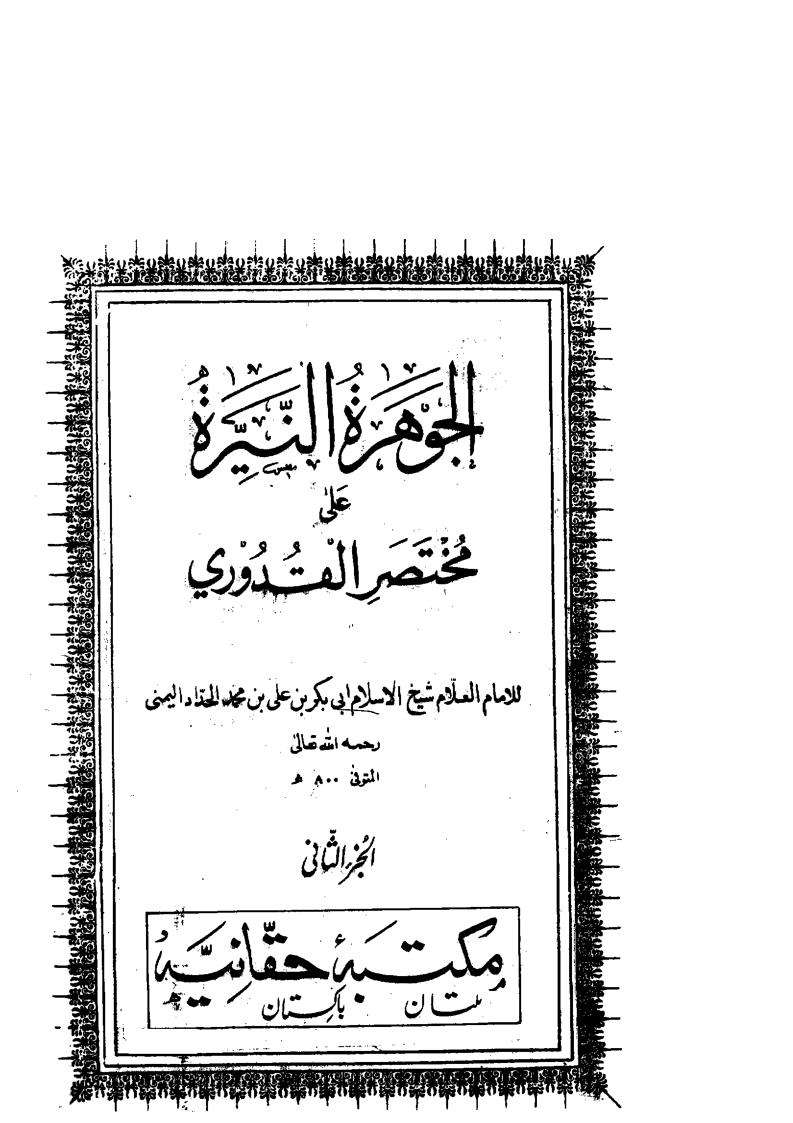 الجَوْهَرَةُ النَّيِّرَةُ
عَلىٰ
مُخْتَصَرِ الْقُدُوْرِي
للامام العلّام شيخ الاسلام ابى بكر بن على بن محمد الحدّاد اليمنى
رحمه الله تعالىٰ
المتوفىٰ ٨٠٠ هـ
الجُزءُ الثّانى
مكتبۂ حقّانیّہ
ملتان پاکستان